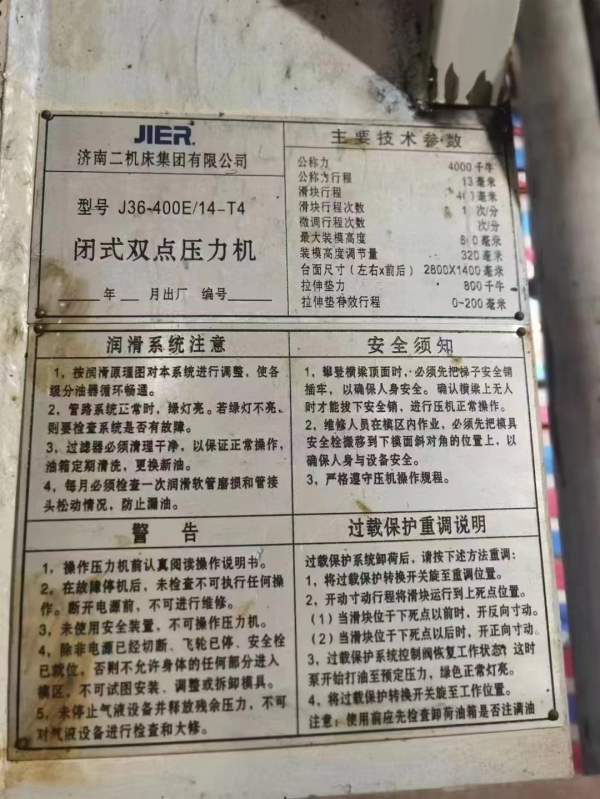 JIER
济南二机床集团有限公司
型号 J36-400E/14-T4
闭式双点压力机
年 月出厂 编号
主要技术参数
公称力 4000 千牛
公称力行程 13 毫米
滑块行程 毫米
滑块行程次数 次/分
微调行程次数 次/分
最大装模高度 毫米
装模高度调节量 320 毫米
台面尺寸(左右x前后) 2800X1400 毫米
拉伸垫力 800 千牛
拉伸垫有效行程 0-200 毫米
润滑系统注意
1、按润滑原理图对本系统进行调整,使各
级分油器循环畅通。
2、管路系统正常时,绿灯亮。若绿灯不亮,
则要检查系统是否有故障。
3、过滤器必须清理干净,以保证正常操作,
油箱定期清洗,更换新油。
4、每月必须检查一次润滑软管磨损和管接
头松动情况,防止漏油。
安全须知
1、攀登横梁顶面时,必须先把梯子安全销
插牢,以确保人身安全。确认横梁上无人
时才能拔下安全销,进行压机正常操作。
2、维修人员在模区内作业,必须先把模具
安全栓搬移到下模面斜对角的位置上,以
确保人身与设备安全。
3、严格遵守压机操作规程。
警告
1、操作压力机前认真阅读操作说明书。
2、在故障停机后,未检查不可执行任何操
作。断开电源前,不可进行维修。
3、未使用安全装置、不可操作压力机。
4、除非电源已经切断、飞轮已停、安全栓
已就位,否则不允许身体的任何部分进入
模区,不可试图安装、调整或拆卸模具。
5、未停止气液设备并释放残余压力,不可
对气液设备进行检查和大修。
过载保护重调说明
过载保护系统卸荷后,请按下述方法重调:
1、将过载保护转换开关旋至重调位置。
2、开动寸动行程将滑块运行到上死点位置。
(1)当滑块位于下死点以前时,开反向寸动。
(2)当滑块位于下死点以后时,开正向寸动。
3、过载保护系统控制阀恢复工作状态,这时
泵开始打油至预定压力,绿色正常灯亮。
4、将过载保护转换开关旋至工作位置。
注意:使用前应先检查卸荷油箱是否注满油